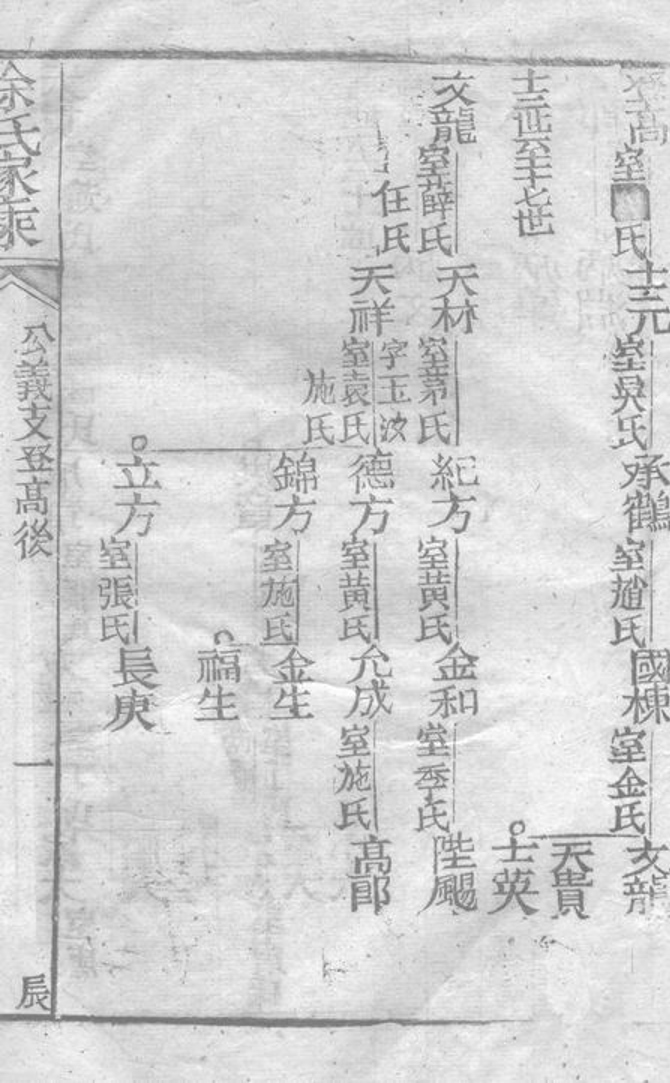 登高 室■氏
士元 室吳氏
承鶴 室趙氏
國棟 室金氏
文龍
天貴
士英
十三世至十七世
文龍 室薛氏
任氏
天林 室茅氏
紀方 室黄氏
金和 室季氏
陛颺
天祥 字玉波
室袁氏
施氏
德方 室黄氏
允成 室施氏
高郎
錦方 室施氏
金生
福生
立方 室張氏
長庚
徐氏家乘
公義支登高後
一
辰